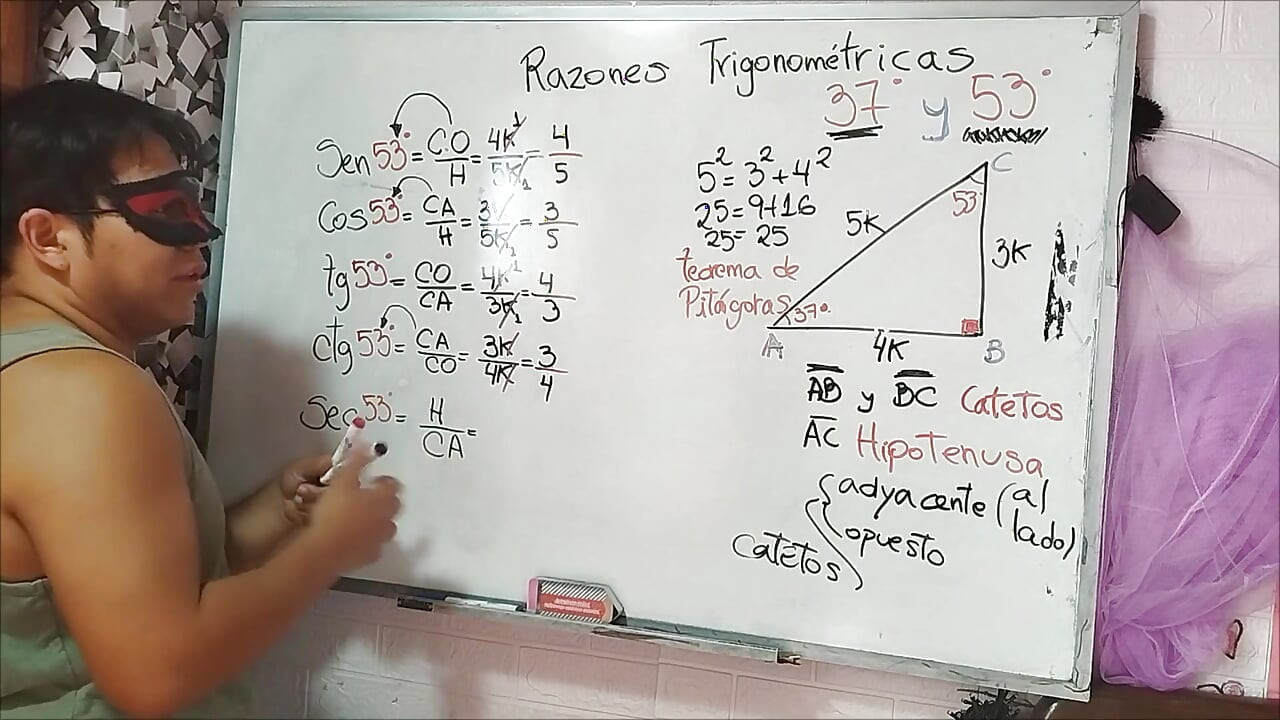 Razones Trigonométricas
37° y 53°
Sen 53° = CO/H = 4K/5K = 4/5
Cos 53° = CA/H = 3K/5K = 3/5
tg 53° = CO/CA = 4K/3K = 4/3
ctg 53° = CA/CO = 3K/4K = 3/4
Sec 53° = H/CA =
5² = 3² + 4²
25 = 9 + 16
25 = 25
teorema de
Pitágoras
C
53°
5K
3K
37°
A
4K
B
AB y BC Catetos
AC Hipotenusa
Catetos
adyacente (al
lado)
opuesto